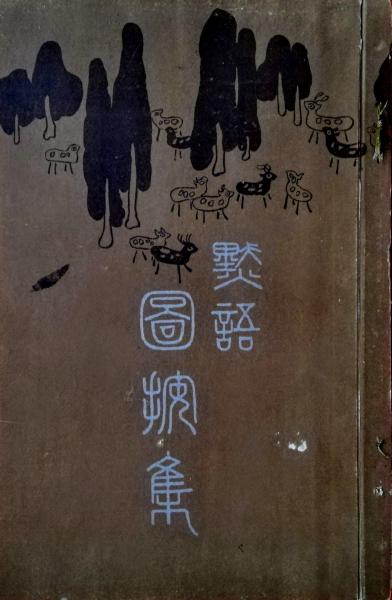 黙語
圖按集